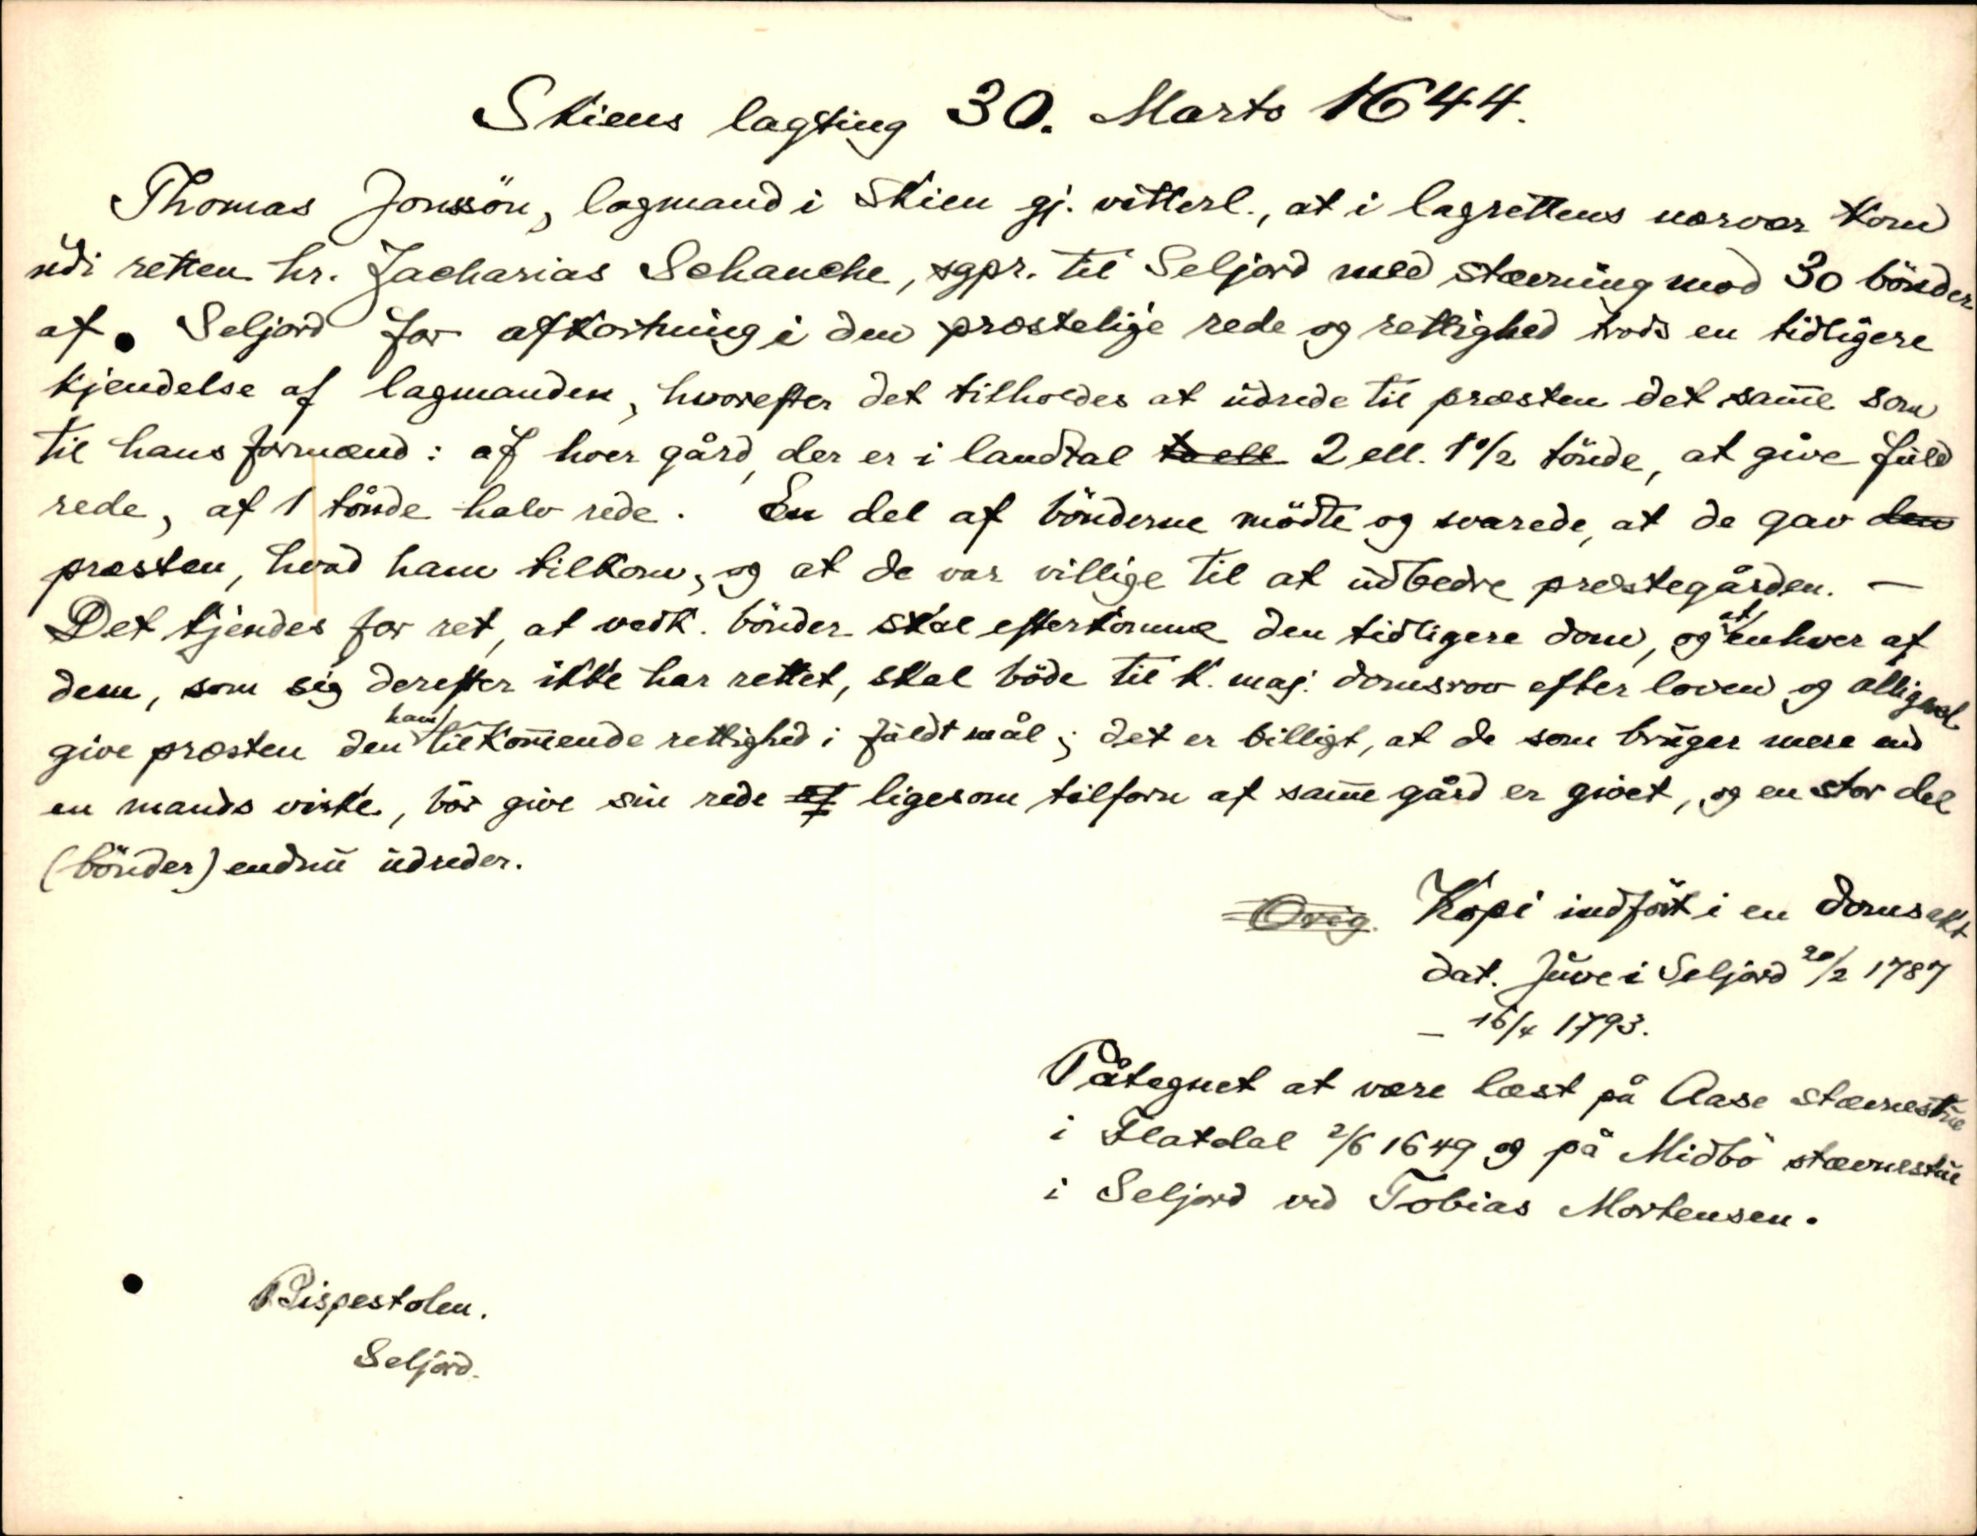 Skiens lagting 30. Marts 1644.
Thomas Jonssön, lagmand i Skien gj. vitterl., at i lagrettens nærvær kom
udi retten hr. Zacharias Schanche, sgpr. til Seljord med stævning mod 30 bönder
af Seljord for afkortning i den præstelige rede og rettighed trods en tidligere
kjendelse af lagmanden, hvorefter det tilholdes at udrede til præsten det samme som
til hans formænd: af hver gård, der er i landtal to ell 2 ell. 1 1/2 tönde, at give fuld
rede, af 1 tönde halv rede. En del af bönderne mödte og svarede, at de gav den
præsten, hvad ham tilkom, og at de var villige til at udbedre præstegården. —
Det kjendes for ret, at vedk. bönder skal efterkomme den tidligere dom, og at enhver af
dem, som sig derefter ikke har rettet, skal böde til k. maj. domsrov efter loven og alligevel
give præsten den ham tilkommende rettighed i fuldt mål; det er billigt, at de som bruger mere end
en mands viste, bör give sin rede af ligesom tilforn af samme gård er givet, og en stor del
(bönder) endnu udreder.
Orig. Kopi indfört i en domsakt
dat. Juve i Seljord 20/2 1787
– 16/4 1793.
Påtegnet at være læst på Aase stævnestue
i Flatdal 2/6 1649 og på Midbö stævnestue
i Seljord ved Tobias Mortensen.
Bispestolen.
Seljord.